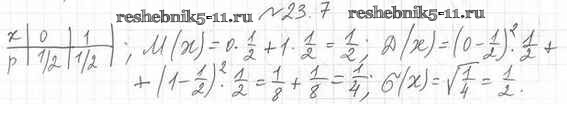 reshebnik5-11.ru №23.7 reshebnik5-11.ru
x | 0 | 1 |
p | 1/2 | 1/2 | ; M(x)=0·1/2+1·1/2=1/2; D(x)=(0-1/2)²·1/2+
+(1-1/2)²·1/2=1/8+1/8=1/4; σ(x)=√1/4=1/2.